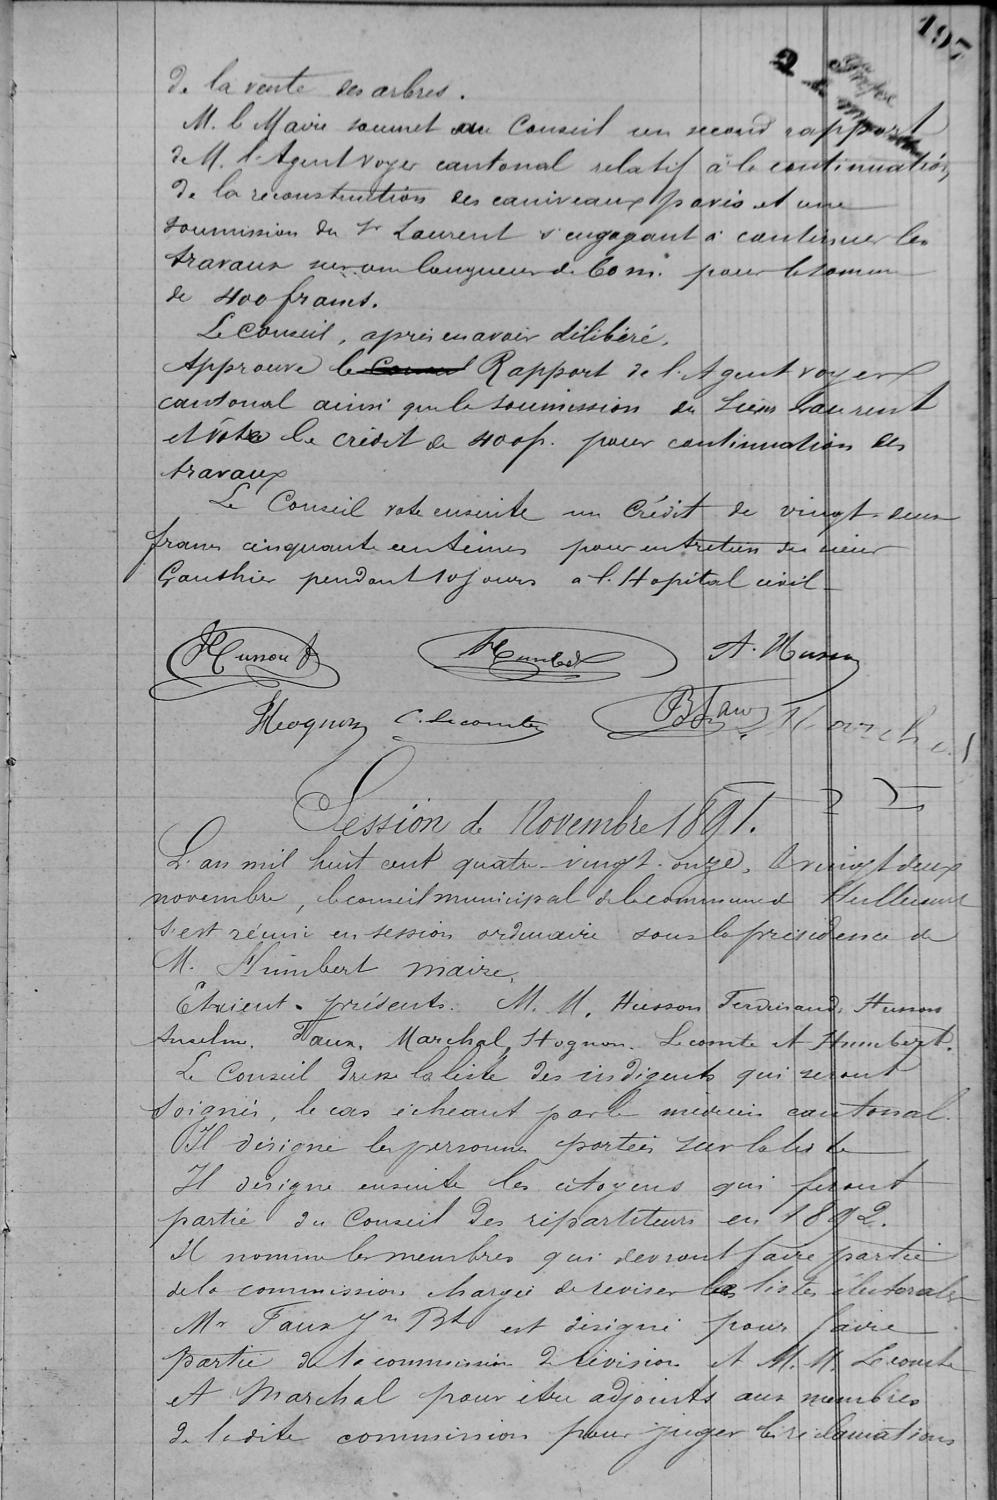 197
de la vente des arbres.
M. le Maire soumet au Conseil un second rapport
de M. l'Agent voyer cantonal relatif à la continuation
de la reconstruction des caniveaux pavés et une
soumission du Sr Laurent s'engageant à continuer les
travaux sur une longueur de 60 m. pour la somme
de 400 francs.
Le Conseil, après en avoir délibéré,
Approuve le Rapport de l'Agent voyer
cantonal ainsi que la soumission du sieur Laurent
et vote le crédit de 400 f. pour continuation des
travaux
Le Conseil vote ensuite un Crédit de vingt-deux
francs cinquante centimes pour entretien du sieur
Gauthier pendant 10 jours à l'Hopital civil
Husson f
Humbert
A. Husson
Hognon C. Lecomte
B Faux
Marchal
Session de Novembre 1891.
L'an mil huit cent quatre-vingt-onze, le vingt deux
novembre, le conseil municipal de la commune d
s'est réuni en session ordinaire sous la présidence de
M. Humbert maire.
Etaient présents. M. M. Husson Ferdinand, Husson
Anselme, Faux, Marchal, Hognon, Lecomte et Humbert.
Le Conseil dresse la liste des indigents qui seront
soignés, le cas échéant par le médecin cantonal.
Il désigne les personnes portées sur la liste
Il désigne ensuite les citoyens qui feront
partie du Conseil des répartiteurs en 1892.
Il nomme les membres qui devront faire partie
de la commission chargée de reviser les listes électorales
Mr Faux Jn Bte est désigné pour faire
partie de la commission de révision et M. M. Lecomte
et Marchal pour être adjoints aux membres
de la dite commission pour juger les réclamations